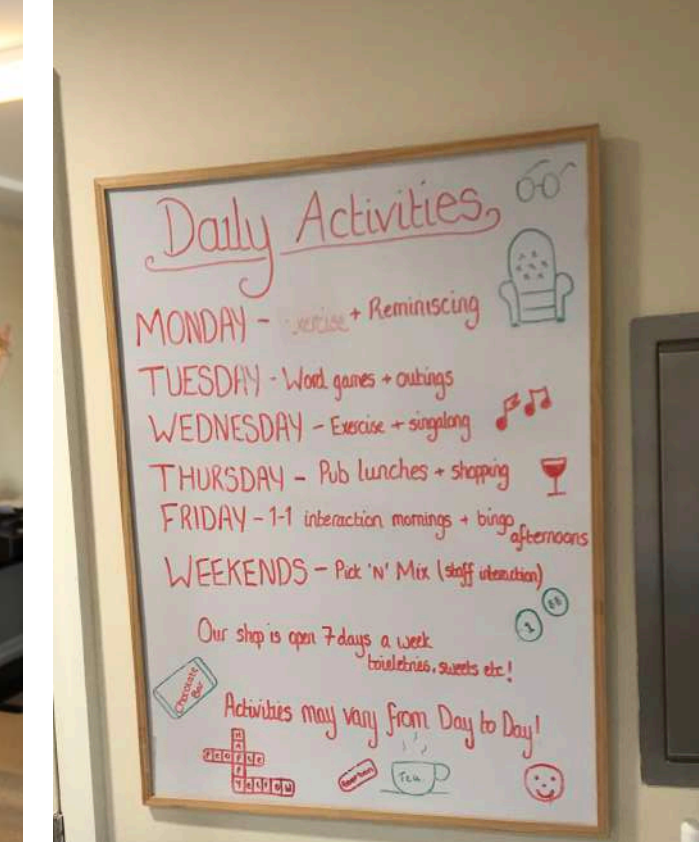 Daily Activities
MONDAY - Exercise + Reminiscing
TUESDAY - Word games + outings
WEDNESDAY - Exercise + singalong
THURSDAY - Pub lunches + shopping
FRIDAY - 1-1 interaction mornings + bingo
afternoons
WEEKENDS - Pick 'N' Mix (staff interaction)
Our shop is open 7 days a week
toiletries, sweets etc!
Chocolate
Bar
Activities may vary from Day to Day!
PEOPLE
YELLOW
Bourbon
Tea